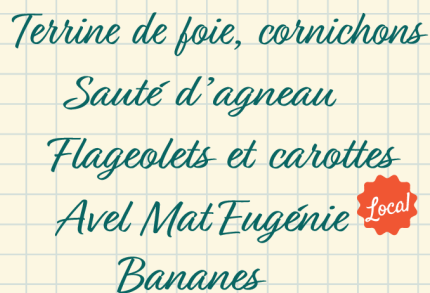 Terrine de foie, cornichons
Sauté d'agneau
Flageolets et carottes
Avel Mat Eugénie Local
Bananes